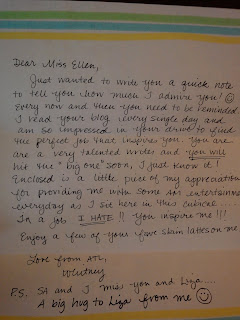 Dear Miss Ellen,
Just wanted to write you a quick note
to tell you how much I admire you! ☺
Every now and then you need to be reminded.
I read your blog every single day and
am so impressed in your drive to find
the perfect job that inspires you. You are
are a very talented writer and you will
hit the "big one" soon, I just know it!
Enclosed is a little piece of my appreciation
for providing me with some fun entertainment
everyday as I sit here in this cubicle....
In a job I HATE!! You inspire me!!!
Enjoy a few of your fave skim lattes on me
Love from ATL,
Whitney
P.S. SA and I miss you and Liza....
A big hug to Liza from me ☺